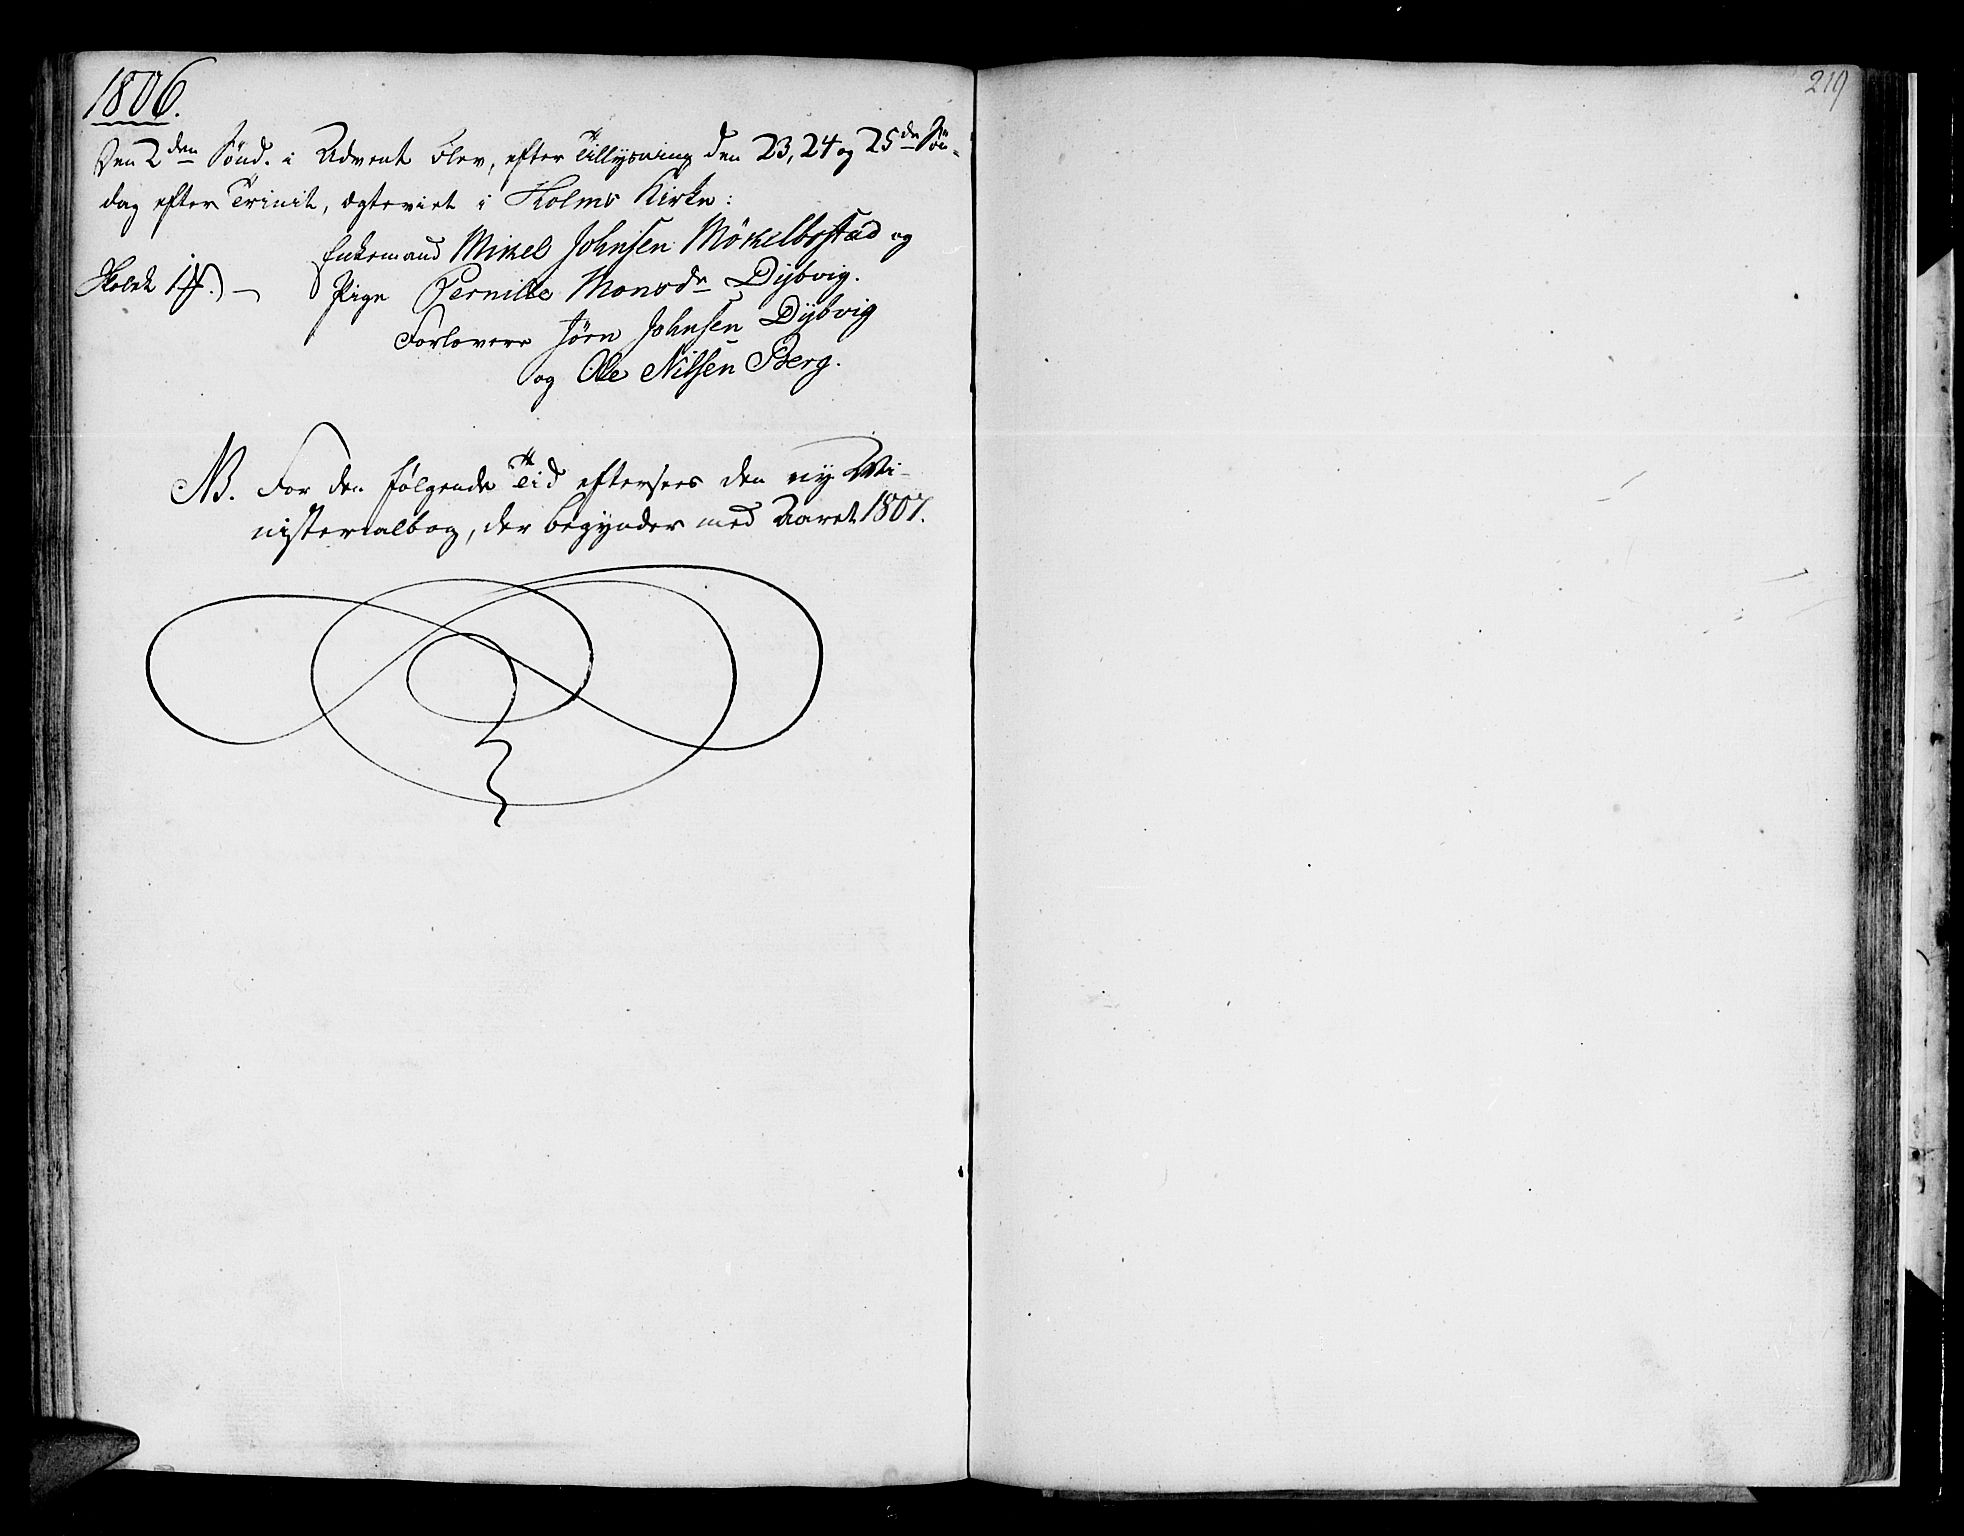 1806.
Den 2den Sönd. i Advent blev, efter Tillysning den 23, 24 og 25de Sön-
dag efter Trinit, ægteviet i Holms Kirke:
Enkemand Mikel Johnsen Mökelbostad og
Skolek 1
Pige Pernille Monsdr Dybvig.
Forlovere Jörn Johnsen Dybvig
og Ole Nilsen Berg.
NB. For den fölgende Tid eftersees den ny Mi-
nisterialbog, der begynder med Aaret 1807.
219